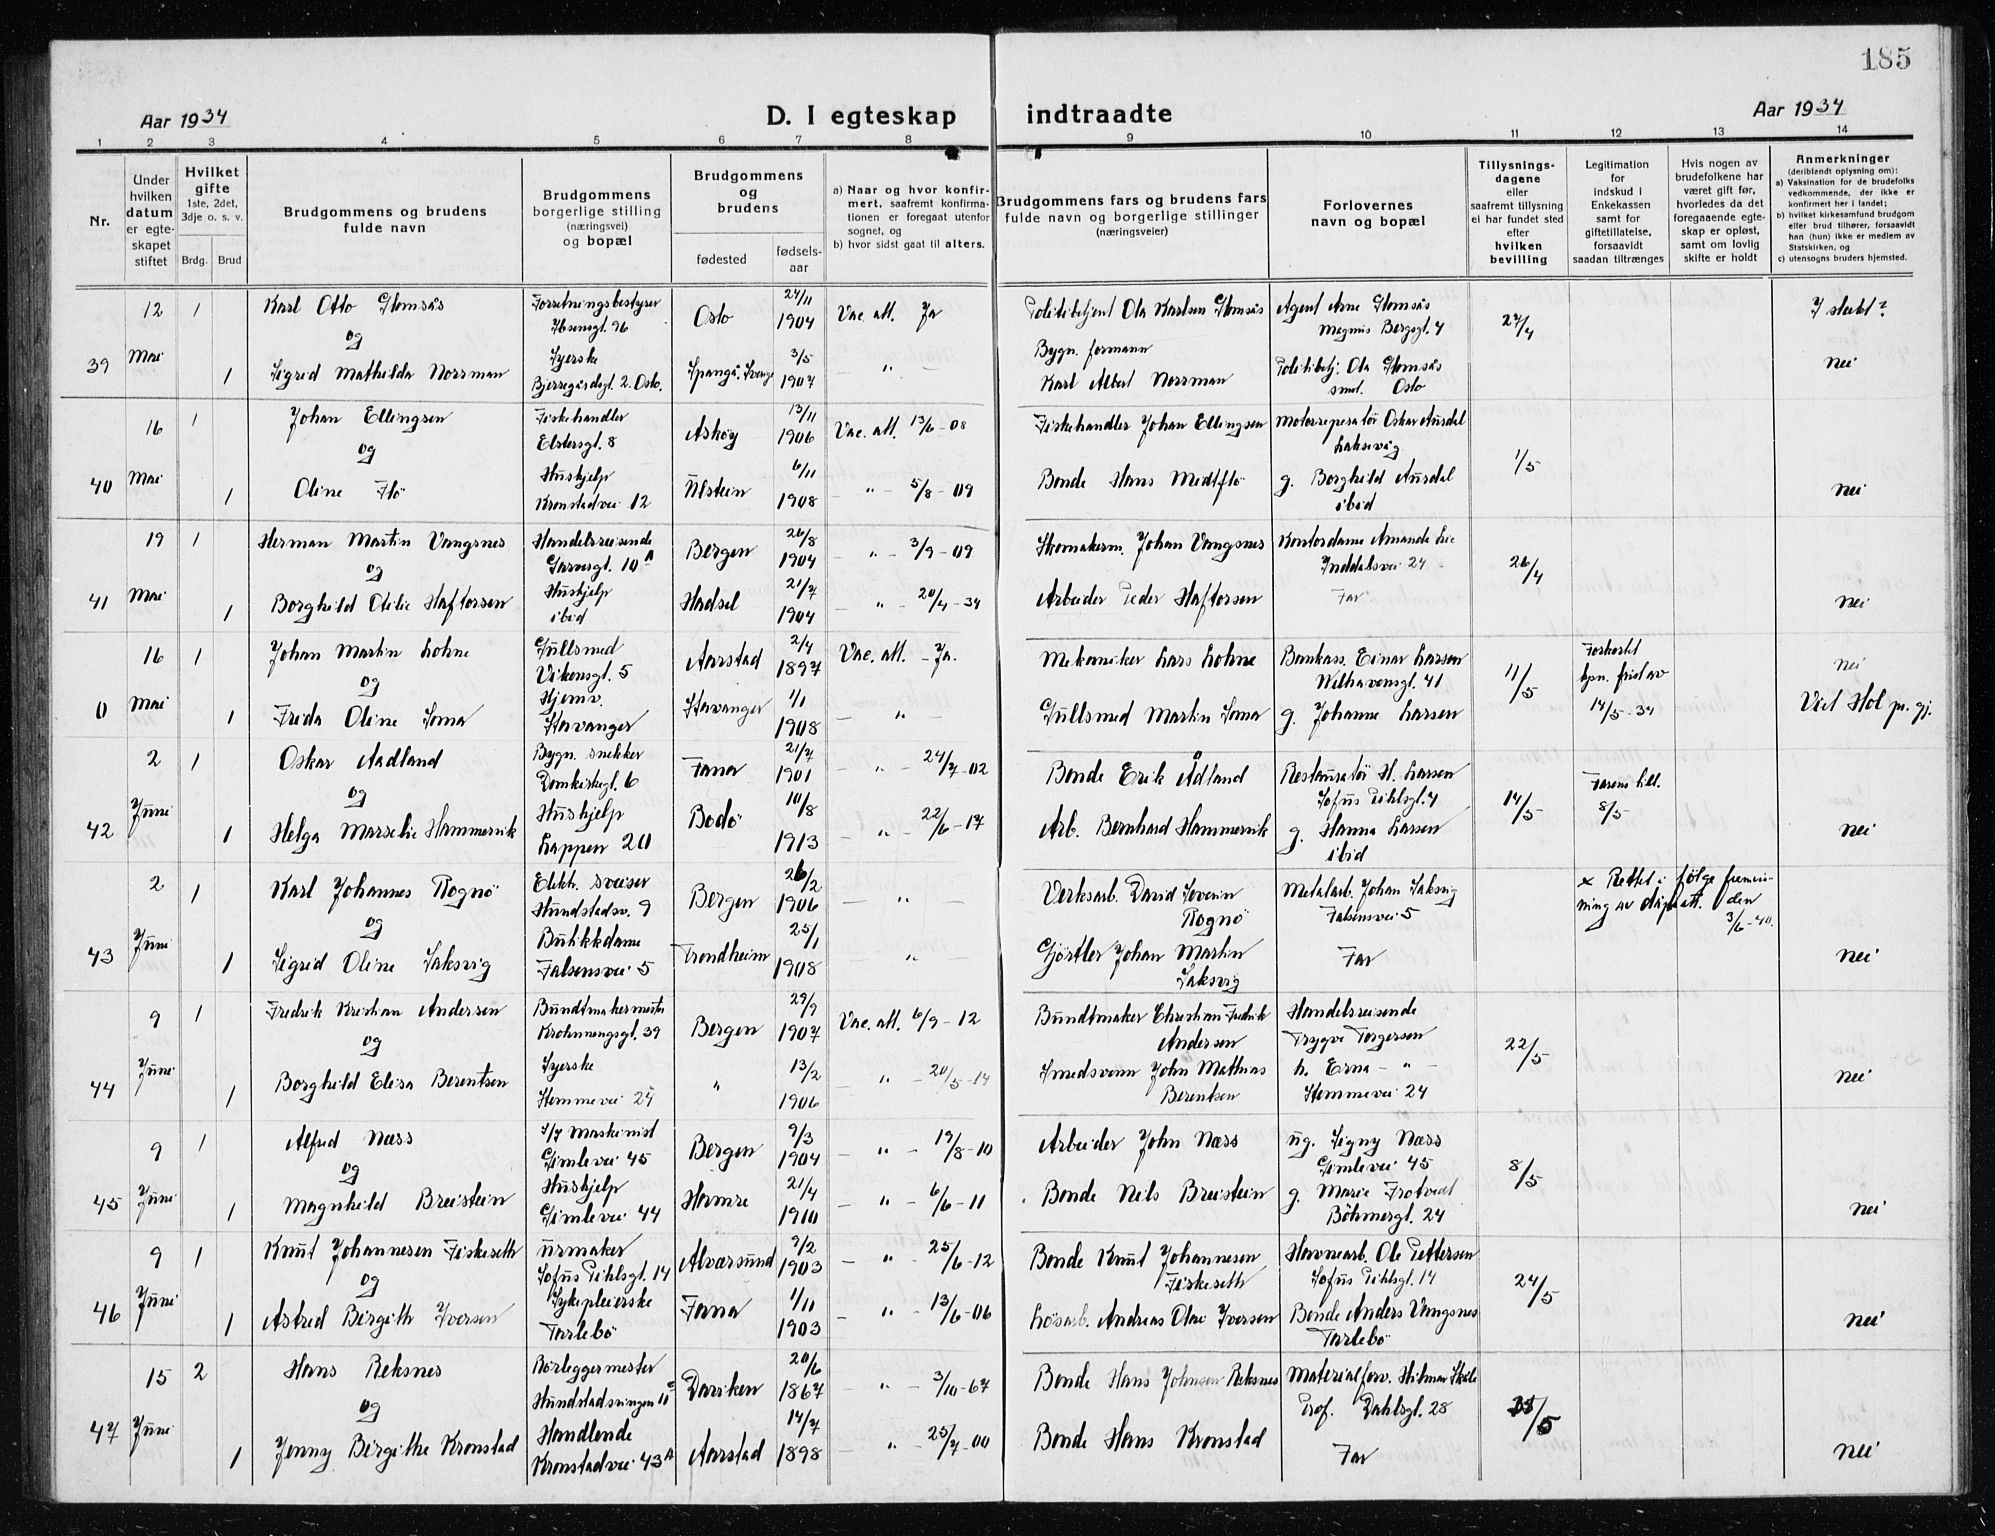 185
Aar 1934
D. I egteskap indtraadte
Aar 1934
1 2 3 4 5 6 7 8 9 10 11 12 13 14
Nr.
Under hvilken datum er egteskapet stiftet
Hvilket gifte 1ste, 2det, 3dje o. s. v.
Brdg. Brud
Brudgommens og brudens fulde navn
Brudgommens borgerlige stilling (næringsvei) og bopæl
Brudgommens og brudens
fødested
fødselsaar
a) Naar og hvor konfirmert, saafremt konfirmationen er foregaat utenfor sognet, og
b) hvor sidst gaat til alters.
Brudgommens fars og brudens fars fulde navn og borgerlige stillinger (næringsveier)
Forlovernes navn og bopæl
Tillysningsdagene eller saafremt tillysning ei har fundet sted efter hvilken bevilling
Legitimation for indskud i Enkekassen samt for giftetillatelse, forsaavidt saadan tiltrænges
Hvis nogen av brudefolkene har været gift før, hvorledes da det foregaaende egteskap er opløst, samt om lovlig skifte er holdt
Anmerkninger (deriblandt oplysning om):
a) Vaksination for de brudefolks vedkommende, der ikke er konfirmert her i landet;
b) hvilket kirkesamfund brudgom eller brud tilhører, forsaavidt han (hun) ikke er medlem av Statskirken, og
c) utensogns bruders hjemsted.
12 1 Karl Otto Flomsås Forretningsbestyrer Ibsensgt. 96 Oslo 24/11 1904 Vac. att. Ja Politibetjent Ola Karlsen Flomsås Agent Arne Flomsås Magnus Bergsgt. 4 27/4
og
39 Mai 1 Sigrid Mathilda Norrman Syerske Bjerregårdsgt. 2. Oslo. Spangå. Sverige 3/5 1907 — " — Bygn. formann Karl Albert Norrman Politibetj. Ola Flomsås smst. Oslo nei
16 1 Johan Ellingsen Fiskehandler Elstersgt. 8 Askøy 13/11 1906 Vac. att. 13/6-08 Fiskehandler Johan Ellingsen Motorreperatør Oskar Ausdal Laksevåg 1/5
og
40 Mai 1 Oline Flø Hushjelp Kronstadvei 12 Ulstein 6/11 1908 — " — 5/8-09 Bonde Hans Midtflø g. Borghild Ausdal ibid nei
19 1 Herman Martin Vangsnes Handelsreisende Garvergt. 10 A Bergen 26/8 1904 — " — 3/9-09 Skomakerm. Johan Vangsnes Kontordame Amanda Lie Inndalsvei 24 26/4
og
41 Mai 1 Borghild Otilie Haftorsen Hushjelp ibid Hadsel 21/7 1904 — " — 20/4-34 Arbeider Peder Haftorsen Far nei
16 1 Johan Martin Lohne Gullsmed Vikensgt. 5 Aarstad 2/4 1897 Vac. att. — Ja. Mekaniker Lars Lohne Bankass. Einar Larsen Welhavensgt. 41 11/5 Forkortet frist av 14/5-34 nei
og
0 Mai 1 Frida Oline Soma Hjemv. Stavanger Stavanger 1/1 1908 — " — Gullsmed Martin Soma g. Johanne Larsen
2 1 Oskar Aadland Bygn. snekker Domkirkegt. 6 Fana 21/7 1901 — " — 24/7-02 Bonde Erik Ådland H. Larsen Sofus Pihlsgt. 4 14/5 Farens till. 8/5
og
42 Juni 1 Helga Marselie Hammervik Hushjelp Lappen 20 Bodø 10/8 1913 — " — 22/6-17 Arb. Bernhard Hammervik g. Hanna Larsen ibid nei
2 1 Karl Johannes Rognø Elekt. sveiser Hunstadsv. 9 Bergen 26/2 1906 — " — Verksarb. David Severin Rognø Metalarb. Johan Saksvig Falsensvei 5 x Rettet i følge fremvisning av dåpsatt. den 3/6-40.
og
43 Juni 1 Sigrid Oline Saksvig Butikkdame Falsensvei 5 Trondheim 25/1 1908 — " — Gjørtler Johan Martin Saksvig Far nei
9 1 Fredrik Kristian Andersen Buntmakermester Krohnengsgt. 39 Bergen 29/9 1907 Vac. att. 6/9-12 Bundtmaker Christian Fredrik Andersen Handelsreisende Trygve Torgersen 22/5
og
44 Juni 1 Borghild Elisa Berentsen Syerske Stemmevei 24 " 13/2 1906 — " — 20/5-14 Smedsvenn John Mathias Berentsen h. Erna — " — Stemmevei 24 nei
9 1 Alfred Næss s/s Maskinist Gimlevei 45 Bergen 9/3 1904 — " — 19/8-10 Arbeider John Næss ug. Signy Næss Gimlevei 45 8/5
og
45 Juni 1 Magnhild Breistein Hushjelp Gimlevei 44 Hamre 21/4 1910 — " — 6/6-11 Bonde Nils Breistein g. Marie Frotvedt Böhmergt. 24 nei
9 1 Knut Johannesen Fiskeseth Urmaker Sofus Pihlsgt. 14 Alversund 9/2 1903 — " — 25/6-12 Bonde Knut Johannesen Fiskeseth Havnearb. Ole Pettersen Sofus Pihlsgt. 14 24/5
og
46 Juni 1 Astrid Birgith Iversen Sykepleierske Tarlebø Fana 1/11 1903 — " — 13/6-06 Løsarb. Andreas Olai Iversen Bonde Anders Vangsnes Tarlebø nei
15 2 Hans Reksnes Rørleggermester Daviken 20/6 1867 — " — 3/10-67 Bonde Hans Johnsen Reksnes Materialforv. Hilmar Prof. Dahlsgt. 28
og
47 Juni 1 Jenny Birgithe Kronstad Handlende Kronstadvei 43 A Aarstad 14/7 1898 — " — 25/7-00 Bonde Hans Kronstad Far nei